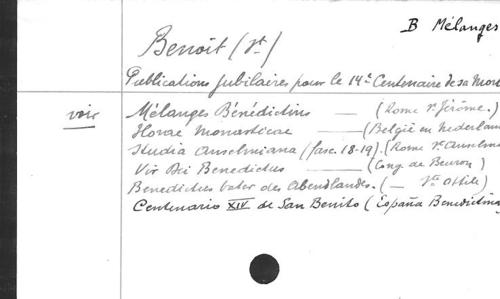 B Mélanges
Benoit (St)
Publications jubilaires pour le 14e Centenaire de sa Mort
voir Mélanges Bénédictins — (Rome St Jérôme.)
Horae Monasticae — (België en Nederland
Studia Anselmiana (fasc. 18-19). (Rome St Anselme
Vir Dei Benedictus — (Cong. de Beuron)
Benedictus Vater des Abendlandes. (— Ste Ottile)
Centenario XIV de San Benito (España Benedictina